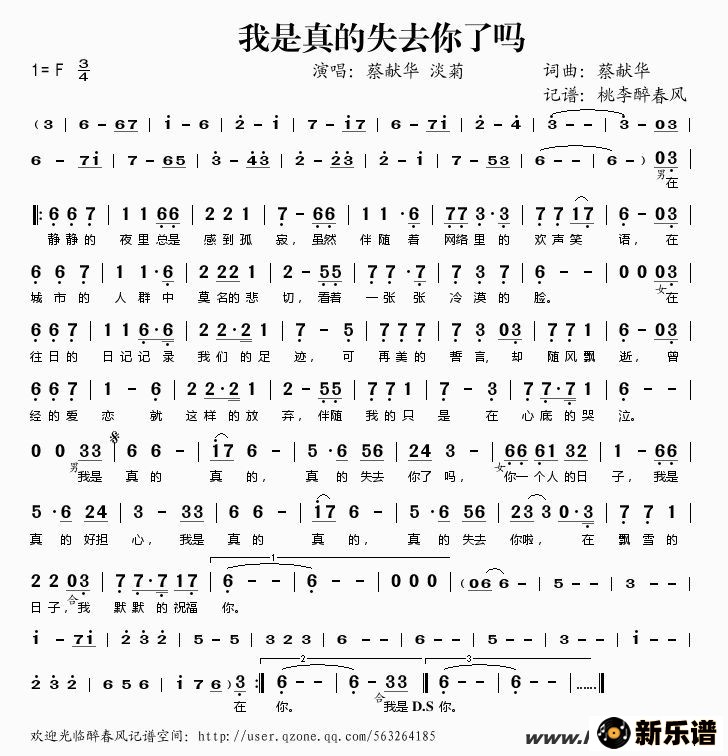 我是真的失去你了吗
1= F 3/4 演唱：蔡献华 淡菊 词曲：蔡献华
记谱：桃李醉春风
(3 | 6 - 67 | i - 6 | 2 - i | 7 - i7 | 6 - i | 2 - 4 | 3 - - | 3 - 03 |
6 - 7i | 7 - 65 | 3 - 43 | 2 - 23 | 2 - i | 7 - 53 | 6 - - | 6 - -) 03 |
男在
6 6 7 | 1 1 66 | 2 2 1 | 7 - 66 | 1 1 · 6 | 77 3 · 3 | 7 7 17 | 6 - 03 |
静静的 夜里总是 感到孤 寂，虽然 伴随着 网络里的 欢声笑 语，在
6 6 6 | 1 1 · 6 | 2 22 1 | 2 - 55 | 7 7 · 7 | 7 5 · 3 | 6 - - | 0 0 03 |
城市的 人群中 莫名的悲 切，看着 一张张 冷漠的 脸。 女在
6 6 7 | 1 1 6·6 | 2 2·2 1 | 7 - 5 | 7 7 3 | 3 03 | 7 7 1 | 6 - 03 |
往日的 日记记录 我们的足 迹，可 再美的 誓言，却 随风飘 逝，曾
6 6 7 | 1 - 6 | 2 2·2 1 | 2 - 55 | 7 7 1 | 7 - 3 | 7 7·7 1 | 6 - - |
经的爱 恋 就 这样的放 弃，伴随 我的只 是 在 心底的哭 泣。
0 0 33 | 6 6 - | i7 6 - | 5 · 6 56 | 24 3 - | 66 61 32 | 1 - 66 |
男我是 真的 真的， 真的失去 你了吗， 女你一个人的日 子，我是
5 · 6 24 | 3 - 33 | 6 6 - | i7 6 - | 5 · 6 56 | 23 3 0·3 | 7 7 1 |
真的好担 心，我是 真的 真的， 真的失去 你啦， 在 飘雪的
2 2 03 | 7 7·7 17 | 1 6 - - | 6 - - | 0 0 0 | (06 6 - | 5 - - | 3 - - |
日子，合我 默默的祝福 你。
i - 7i | 2 3 2 | 5 - 5 | 3 2 3 | 6 - 6 | 2 3 2 | i - 7 | 5 - 5 |
2 3 2 | 6 5 6 | i 7 6) 3 :| 2 6 - - | 6 - 33 :| 3 6 - - | 6 - - | ...... |
合在 你。 合我是 D.S 你。
欢迎光临醉春风记谱空间：http://user.qzone.qq.com/563264185
www.
新乐谱